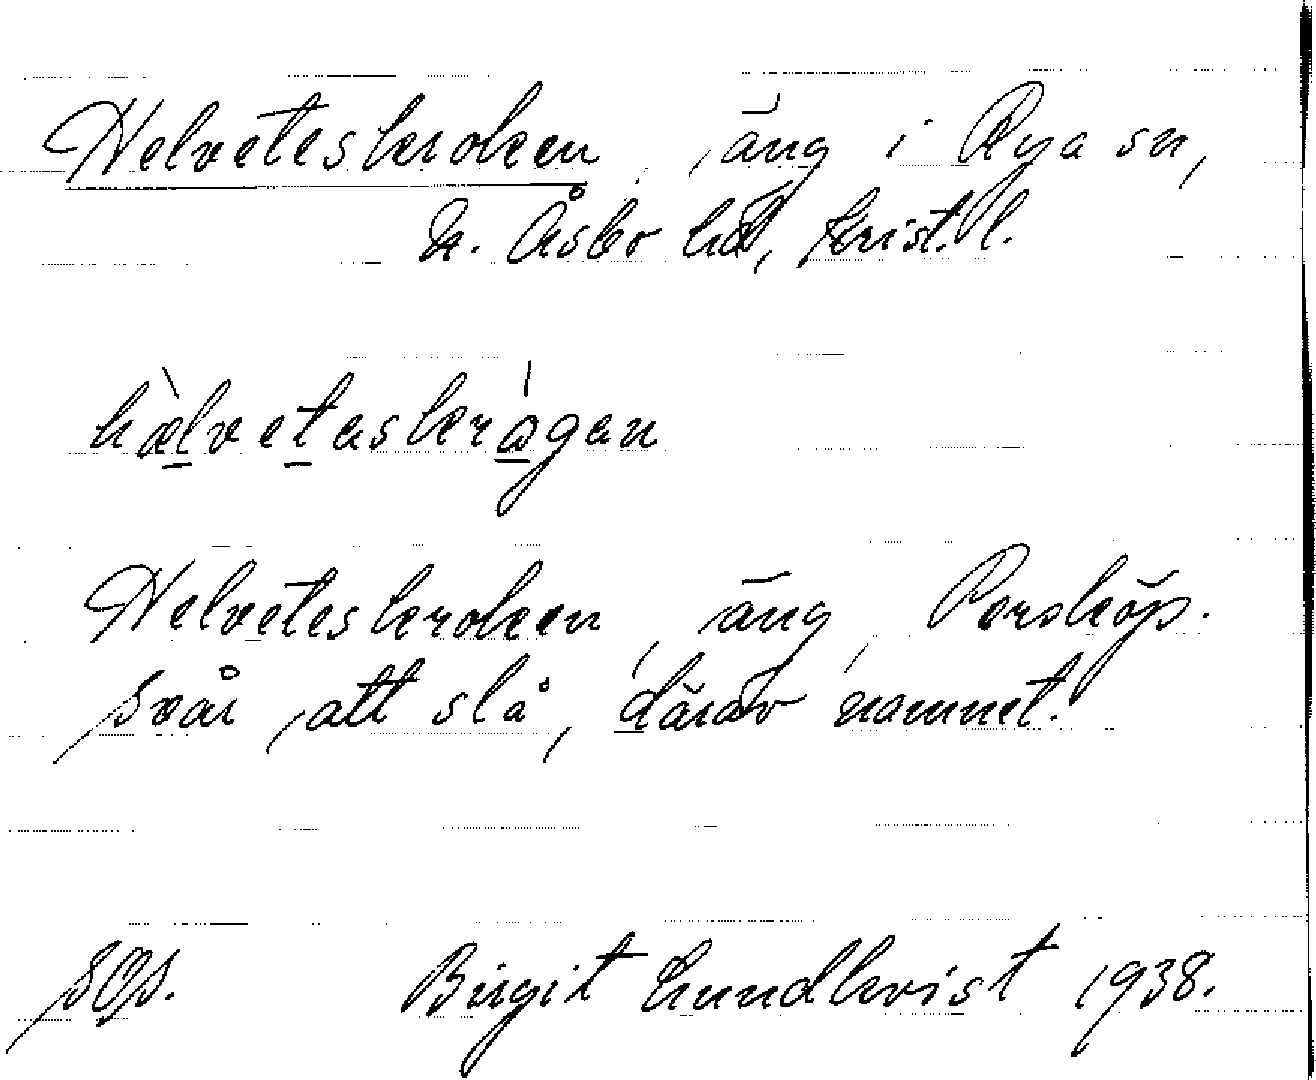 Helveteskroken, äng i Rya sn,
N. Åsbo hd, Krist. l.
hælvetaskrågan
Helveteskroken, äng, Persköp.
svår att slå, därav namnet.
Birgit Lundkvist 1938.